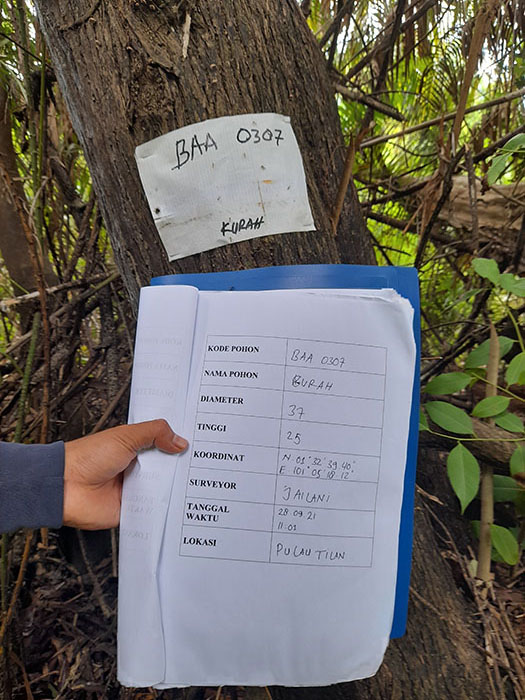 BAA 0307
KURAH
KODE POHON BAA 0307
NAMA POHON KURAH
DIAMETER 37
TINGGI 25
KOORDINAT N 01° 32' 39.40"
E 101° 05' 18.12"
SURVEYOR JAILANI
TANGGAL 28.09.21
WAKTU 11.01
LOKASI PULAU TILAN